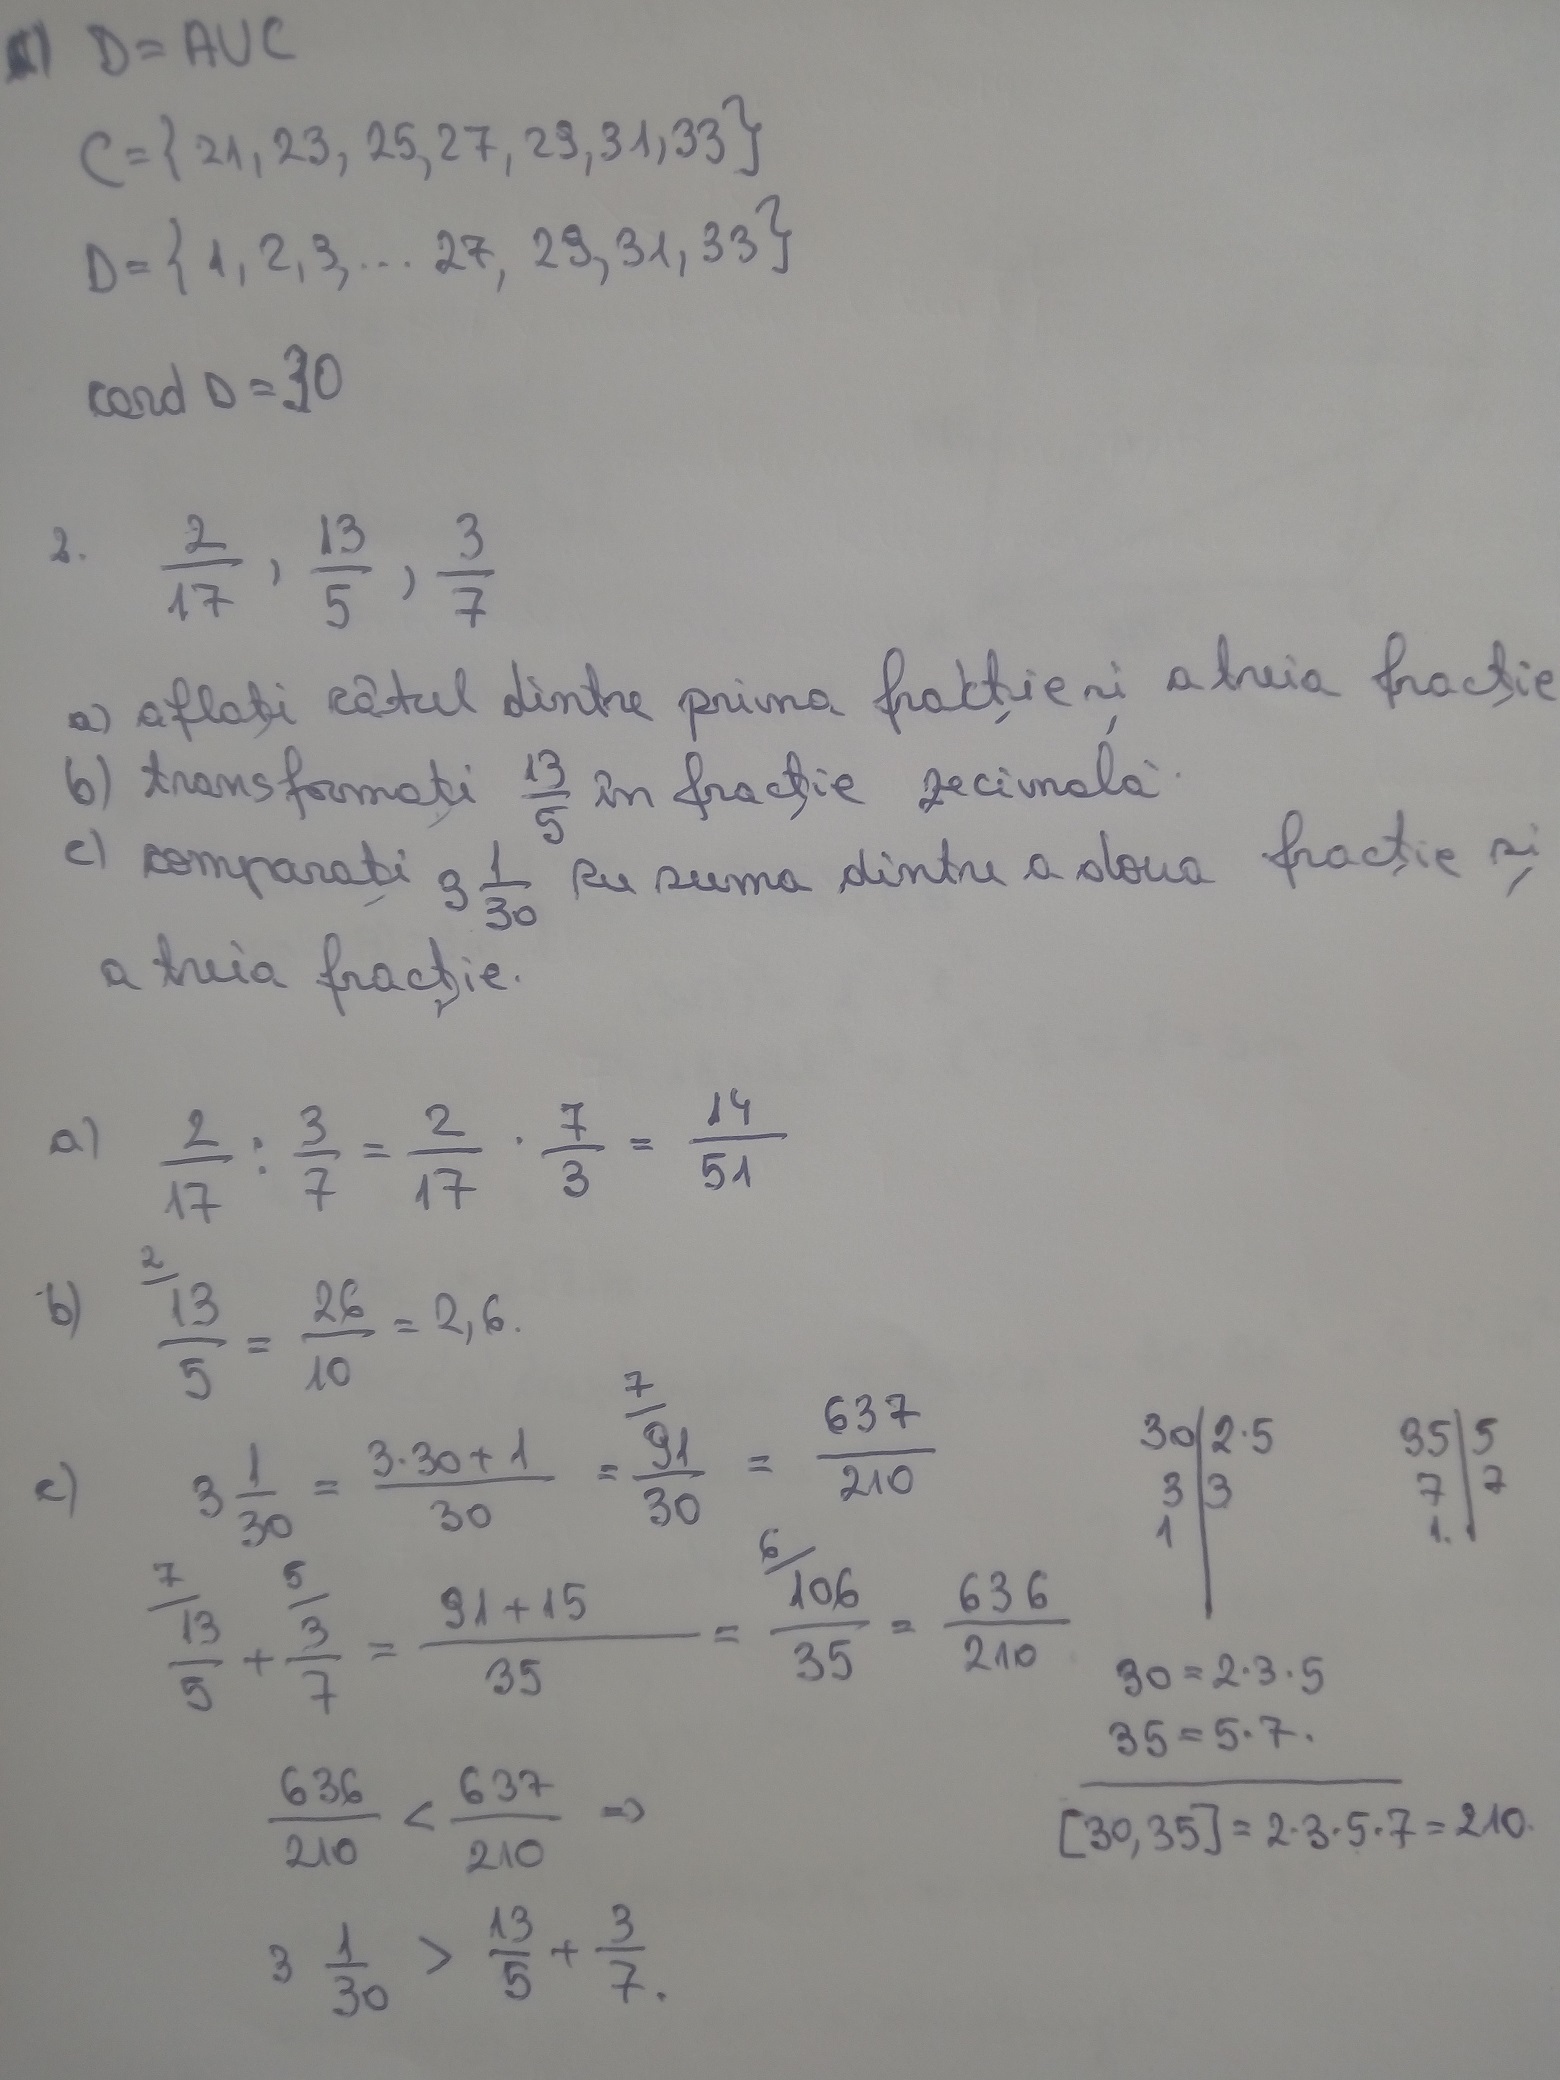 c) D = AUC
C = {21, 23, 25, 27, 29, 31, 33}
D = {1, 2, 3, ... 27, 29, 31, 33}
card D = 30
2. 2/17, 13/5, 3/7
a) aflați câtul dintre prima fracție și a treia fracție
b) transformați 13/5 în fracție zecimală.
c) comparați 3 1/30 cu suma dintre a doua fracție și
a treia fracție.
a) 2/17 : 3/7 = 2/17 · 7/3 = 14/51
b) ²⁄ 13/5 = 26/10 = 2,6.
c) 3 1/30 = 3·30+1/30 = ⁷⁄ 91/30 = 637/210
⁷⁄ 13/5 + ⁵⁄ 3/7 = 91+15/35 = ⁶⁄ 106/35 = 636/210
636/210 < 637/210 =>
3 1/30 > 13/5 + 3/7.
30 | 2·5
3 | 3
1 |
35 | 5
7 | 7
1. |
30 = 2·3·5
35 = 5·7.
[30, 35] = 2·3·5·7 = 210.